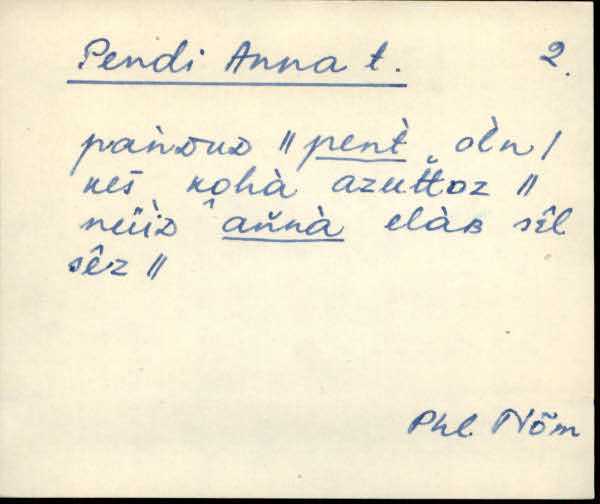 Pendi Anna t. 2.
pańᴅuᴅ || pent̀ òl̀n /
keš kohà azut̆t̆oz ||
nüìᴅ ^ ańnà elàʙ sîl
sêz ||
Phl. Nõm